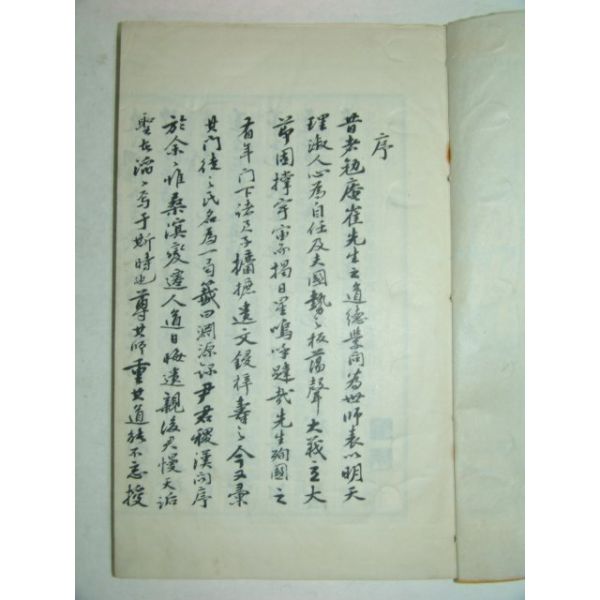 序
昔者勉庵崔先生之道德學問為世師表以明天
理淑人心為自任及夫國勢之板蕩聲大義立大
節固撑宇宙而揭日星嗚呼韙哉先生殉國之
有年門下諸君子摭遺文鋟梓壽之今又彙
其門徒之氏名為一局籤曰淵源錄尹君稷漢問序
於余余惟桑溟變遷人道日晦遺親後君慢天詬
聖者滔滔焉于斯時也尊其師重其道能不忘授